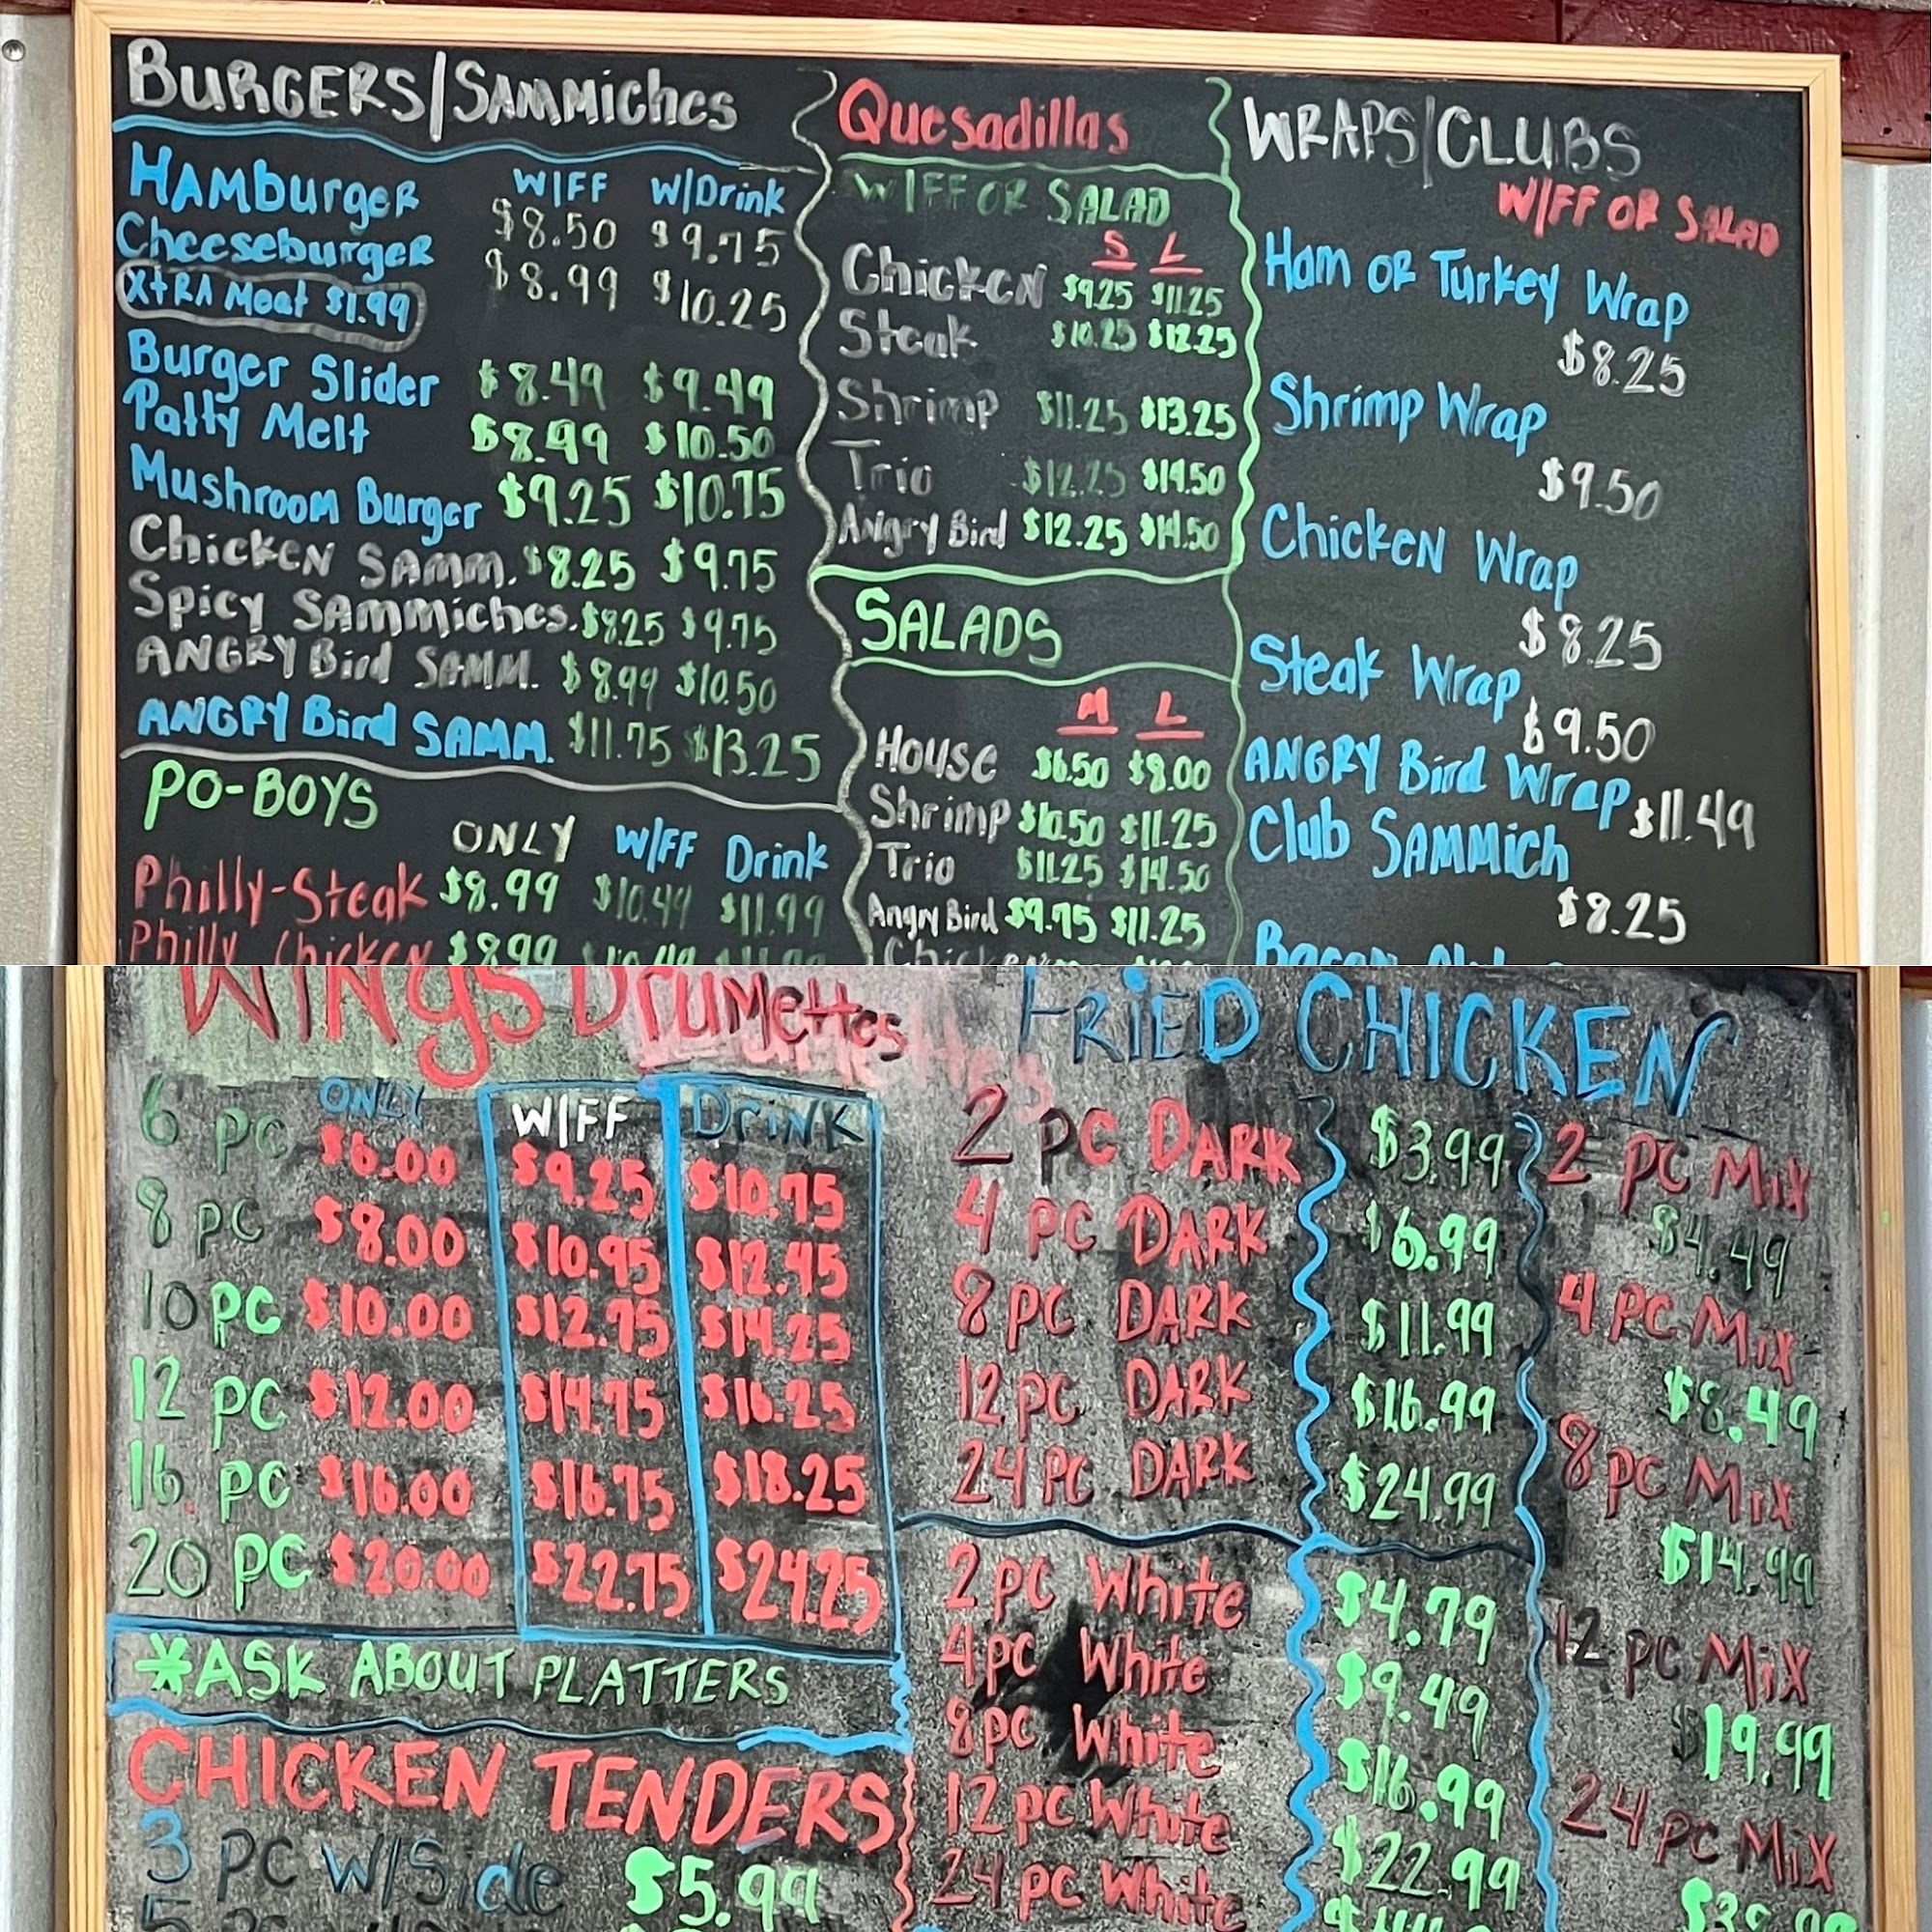 BURGERS/SAMMiches
W/FF W/Drink
HAMburgeR $8.50 $9.75
CheeseburgeR $8.99 $10.25
XtRA Meat $1.99
Burger Slider $8.49 $9.49
Patty Melt $8.99 $10.50
MushrooM Burger $9.25 $10.75
ChickeN SAMM. $8.25 $9.75
Spicy SAMmiches. $8.25 $9.75
ANGRY Bird SAMM. $8.99 $10.50
ANGRY Bird SAMM. $11.75 $13.25
PO-BOYS
ONLY W/FF Drink
Philly-Steak $8.99 $10.49 $11.99
Philly Chicken $8.99
Quesadillas
W/FF OR SALAD
S L
ChickeN $9.25 $11.25
Steak $10.25 $12.25
Shrimp $11.25 $13.25
Trio $12.25 $14.50
Angry Bird $12.25 $14.50
SALADS
M L
House $6.50 $8.00
Shrimp $10.50 $11.25
Trio $11.25 $14.50
Angry Bird $9.75 $11.25
WRAPS/CLUBS
W/FF OR SALAD
Ham OR Turkey Wrap
$8.25
Shrimp Wrap
$9.50
ChickeN Wrap
$8.25
Steak Wrap
$9.50
ANGRY Bird Wrap $11.49
Club SAMMich
$8.25
WiNgs DruMettes
ONLY W/FF DriNK
6 pc $6.00 $9.25 $10.75
8 pc $8.00 $10.95 $12.45
10 pc $10.00 $12.75 $14.25
12 pc $12.00 $14.75 $16.25
16 pc $16.00 $16.75 $18.25
20 pc $20.00 $22.75 $24.25
*ASK ABOUT PLATTERS
CHICKEN TENDERS
3 pc W/Side $5.99
FRiED CHICKEN
2 pc DARK $3.99
4 pc DARK $6.99
8 pc DARK $11.99
12 pc DARK $16.99
24 pc DARK $24.99
2 pc White $4.79
4 pc White $9.49
8 pc White $16.99
12 pc White $22.99
24 pc White
2 pc Mix
$4.49
4 pc Mix
$8.49
8 pc Mix
$14.99
12 pc MiX
$19.99
24 pc MiX